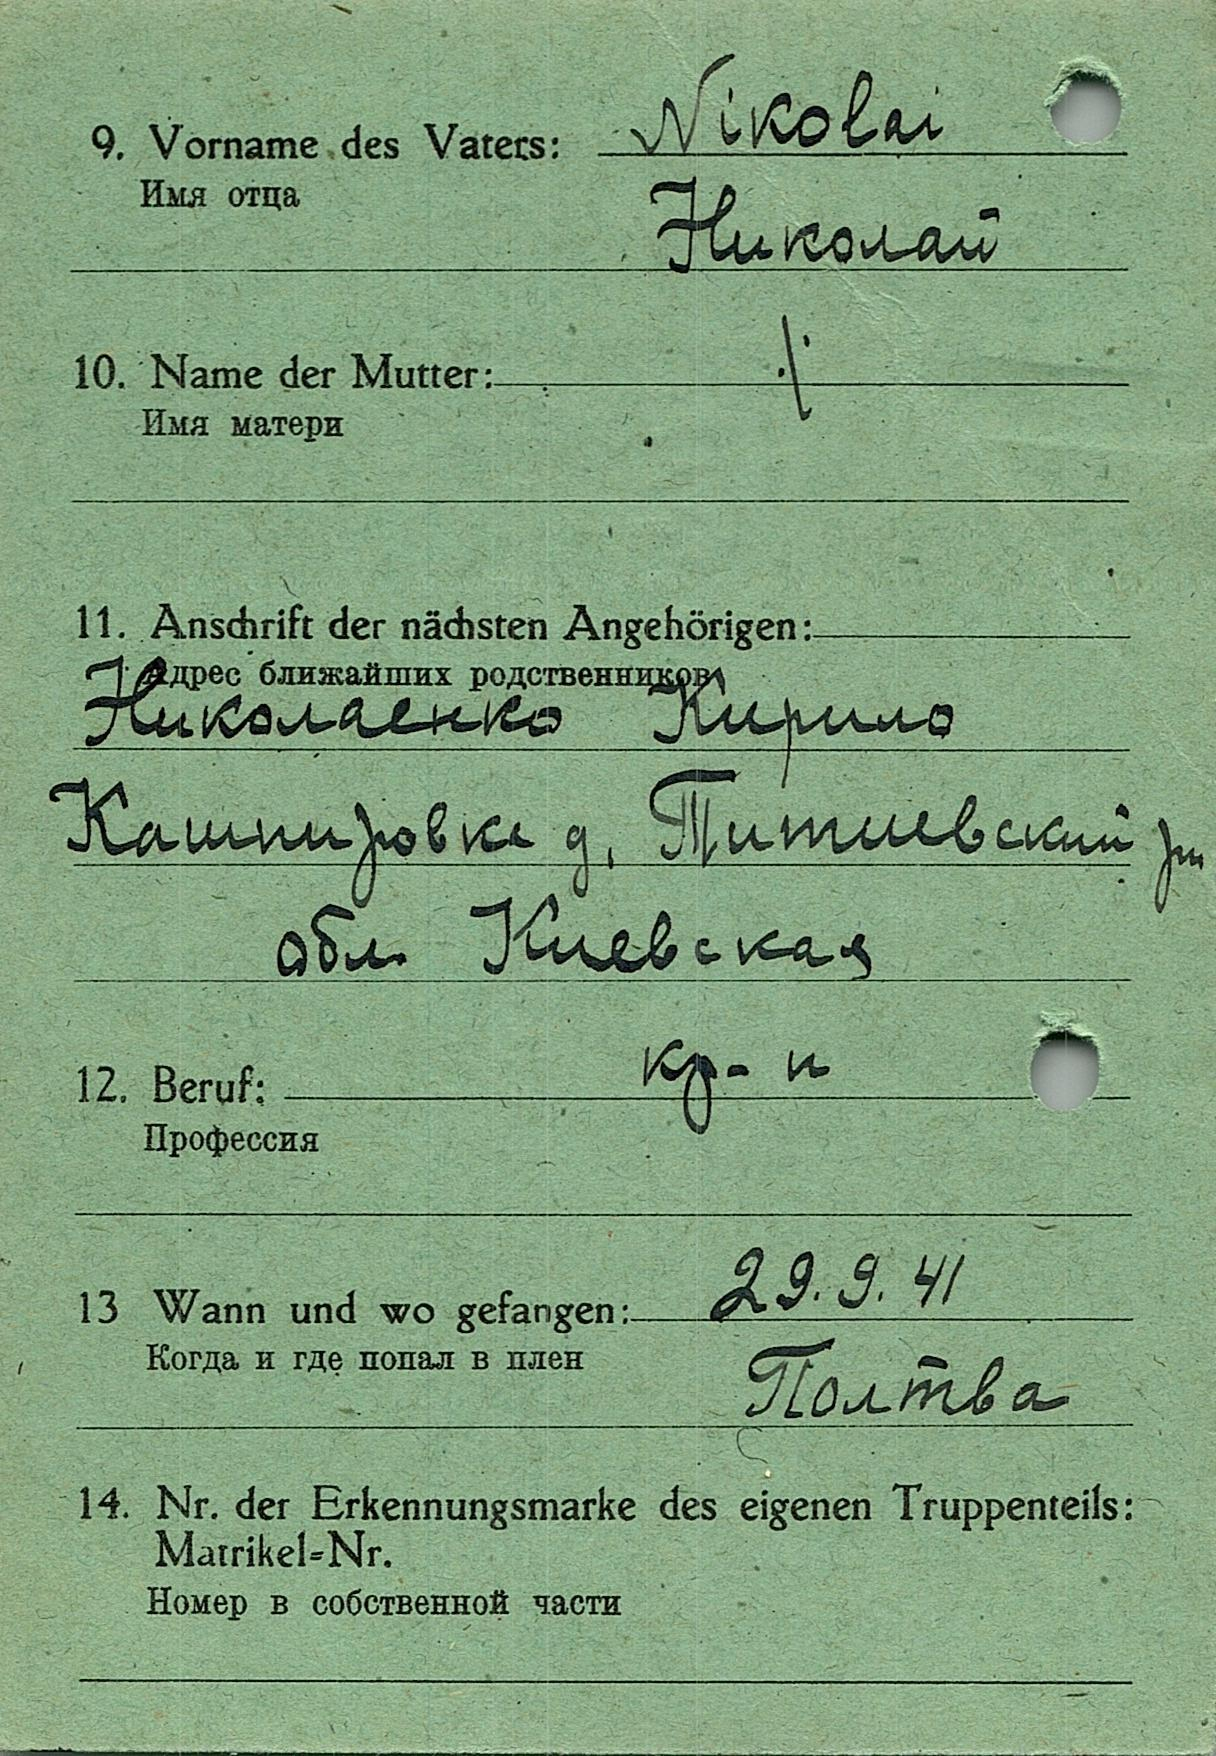 9. Vorname des Vaters: Nikolai
Имя отца
Николай
10. Name der Mutter: ./.
Имя матери
11. Anschrift der nächsten Angehörigen:
Адрес ближайших родственников
Николаенко Кирило
Кашпировка д, Титиевский рн
обл. Киевская
12. Beruf: кр-н
Профессия
13 Wann und wo gefangen: 29.9.41
Когда и где попал в плен
Полтва
14. Nr. der Erkennungsmarke des eigenen Truppenteils:
Matrikel-Nr.
Номер в собственной части